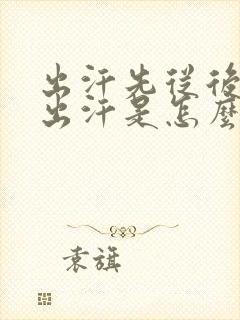 出汗先従後
出汗是怎麼
袁旗